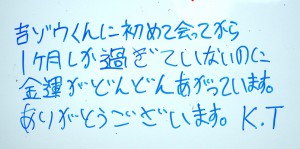 吉ゾウくんに初めて会ってから
1ヶ月しか過ぎていないのに
金運がどんどんあがっています。
ありがとうございます。 K.T